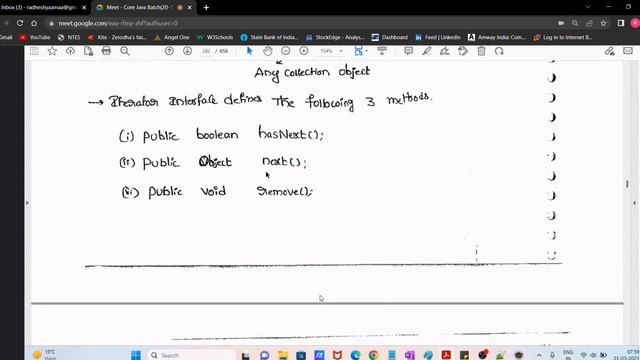 Inbox (3) - radheshyaamaa@gm
Meet - Core Java Batch(20-1
meet.google.com/eaa-rhny-zhf?authuser=0
NSE
NTES
State Bank of India
StockEdge - Analysis
Kite - Zerodha's fast
Dashboard
Feed | LinkedIn
Amway India | Log In
Log in to Internet B
282 / 658
154%
Any collection object
→ Iterator Interface defines The following 3 methods.
(i) public boolean hasNext();
(ii) public Object next();
(iii) public void remove();
15°C
Haze
ENG
IN
07:59
21-03-2023